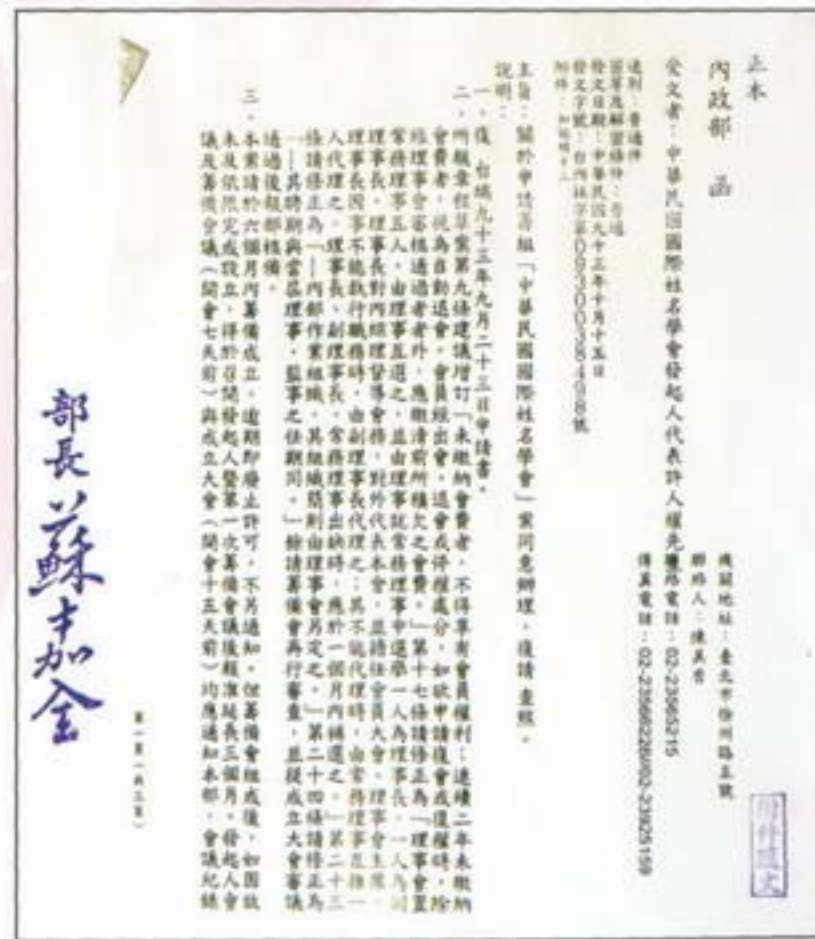 正本
內政部 函
機關地址：臺北市徐州路五號
聯絡人：陳美
聯絡電話：02-23565215
傳真電話：02-23566226/02-23925159
附件隨文
受文者：中華民國國際姓名學會發起人代表許人權先
速別：普通件
密等及解密條件：普通
發文日期：中華民國九十三年十月十五日
發文字號：台內社字第0930038498號
附件：如說明
主旨：關於申請籌組「中華民國國際姓名學會」案同意辦理，復請 查照。
說明：
一、復 台端九十三年九月二十三日申請書。
二、所報章程草案第九條建議增訂「未繳納會費者，不得享有會員權利；連續二年未繳納
會費者，視為自動退會。會員經出會、退會或停權處分，如欲申請復會或復權時，除
經理事會審核通過者外，應繳清前所積欠之會費。」第十七條請修正為「理事會置
常務理事五人，由理事互選之，並由理事就常務理事中選舉一人為理事長，一人為副
理事長。理事長對內綜理督導會務，對外代表本會，並擔任會員大會、理事會主席。
理事長因事不能執行職務時，由副理事長代理之；其不能代理時，由常務理事互推一
人代理之。理事長、副理事長、常務理事出缺時，應於一個月內補選之。」第二十三
條請修正為「—內部作業組織，其組織簡則由理事會另定之。」第二十四條請修正為
「—其聘期與當屆理事、監事之任期同。」餘請籌備會再行審查，並提成立大會審議
通過後報部核備。
三、本案請於六個月內籌備成立，逾期即廢止許可，不另通知。但籌備會組成後，如因故
未及依限完成設立，得於召開發起人暨第一次籌備會議後報准延長三個月。發起人會
議及籌備會議（開會七天前）與成立大會（開會十五天前）均應通知本部，會議紀錄
第一頁（共二頁）
部長 蘇嘉全